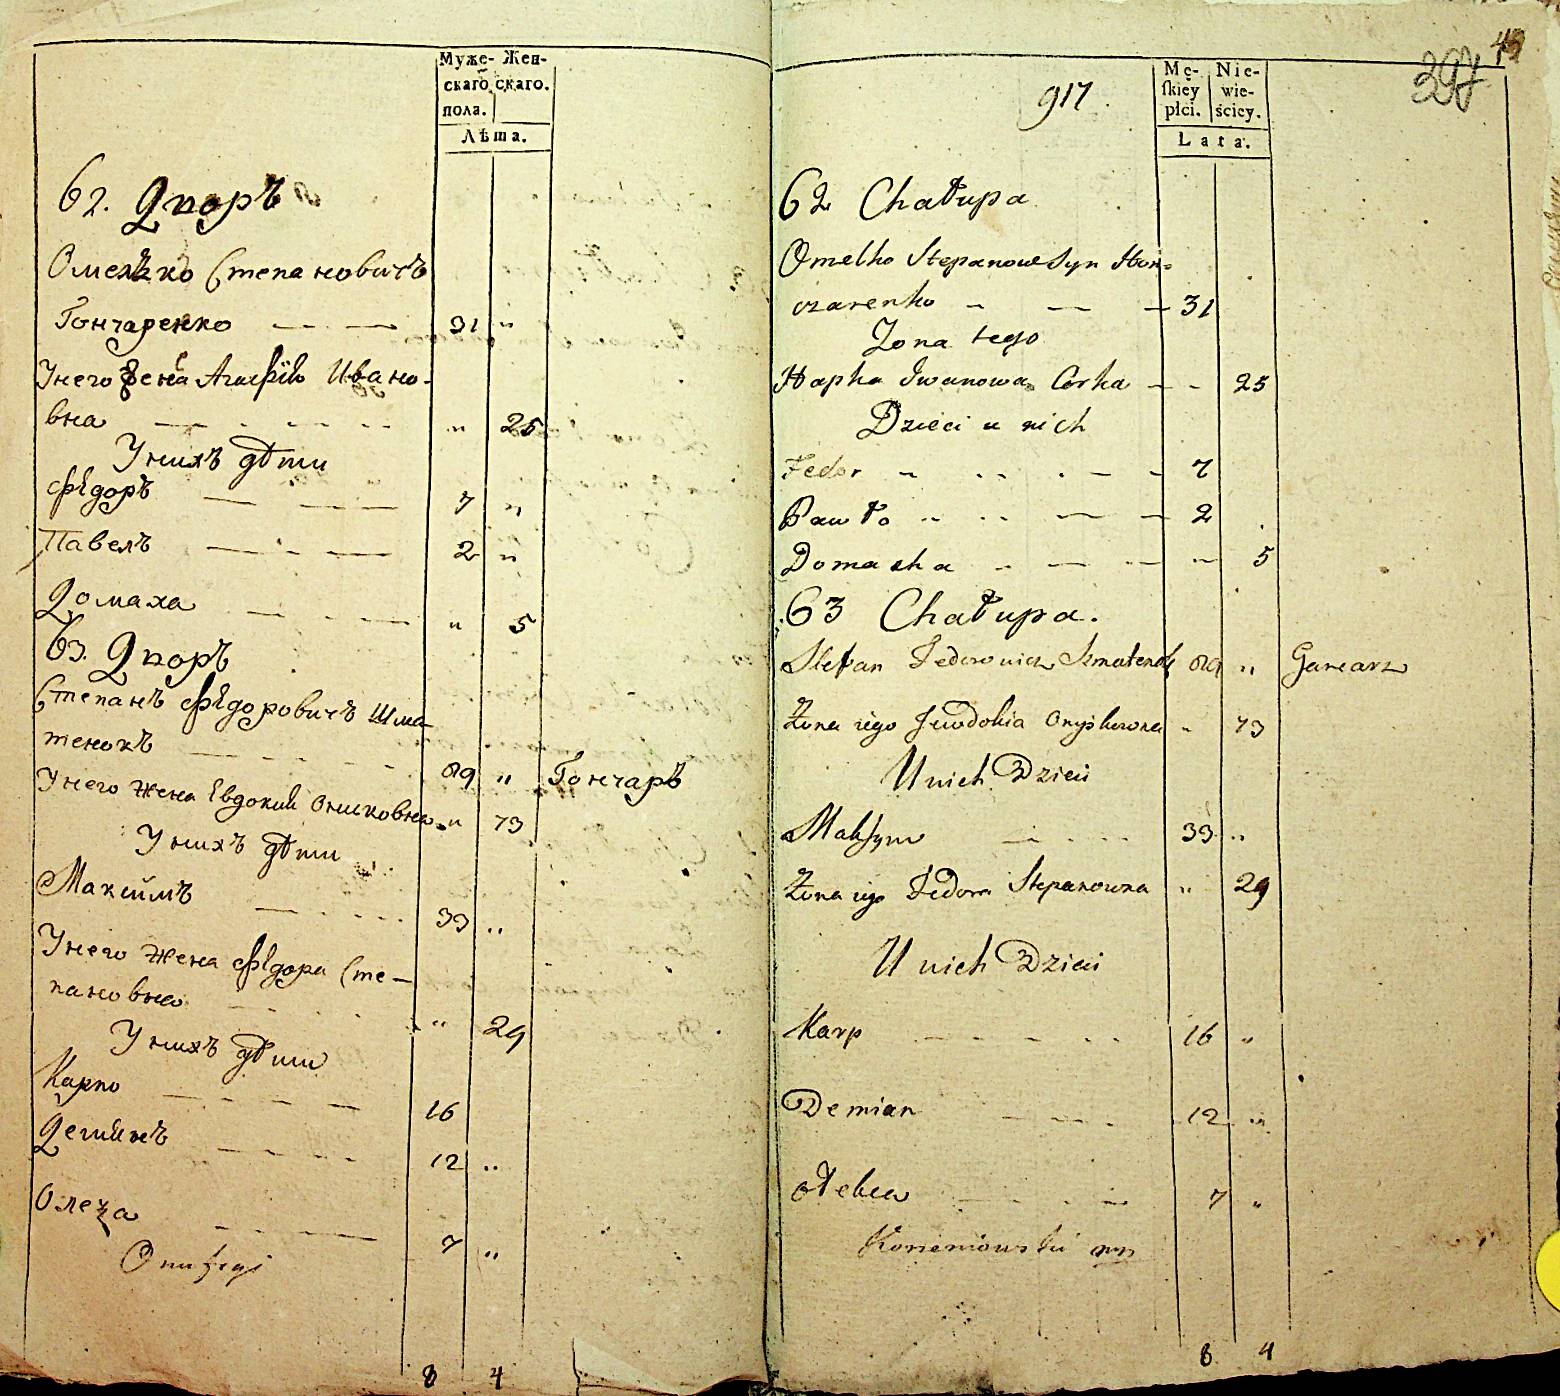 Муже- Жен-
скаго скаго.
пола.
Лѣта.
62. Дворъ
Омелько Степановичъ
Гончаренко 31 "
Унего жена Агафія Ивано-
вна " 25
Унихъ дѣти
Фѣдоръ 7 "
Павелъ 2 "
Домаха " 5
63. Дворъ
Степанъ Фѣдоровичъ Шма-
тенокъ 89 " Гончаръ
Унего жена Евдокия Онисковна " 73
Унихъ дѣти
Максимъ 33 "
Унего жена Фѣдора Сте-
пановна " 29
Унихъ дѣти
Карпо 16
Демиянъ 12 "
7 "
Onufregi
8 4
49
397
917
Mę- Nie-
ſkiey wie-
płci. ściey.
Lata.
62 Chałupa
Omelko Stepanow Syn Hon-
czarenko 31
Zona tego
Hapka Iwanowa Corka 25
Dzieci u nich
Fedor 7
Pawło 2
Domacha 5
63 Chałupa.
Stefan Fedorowicz Szmatenok 89 " Garcarz
Żona iego Jewdokia Onyskowna " 73
U nich Dzieci
Maksym 33 "
Żona iego Fedora Stepanowna " 29
U nich Dzieci
Karp 16 "
Demian 12 "
7 "
8 4